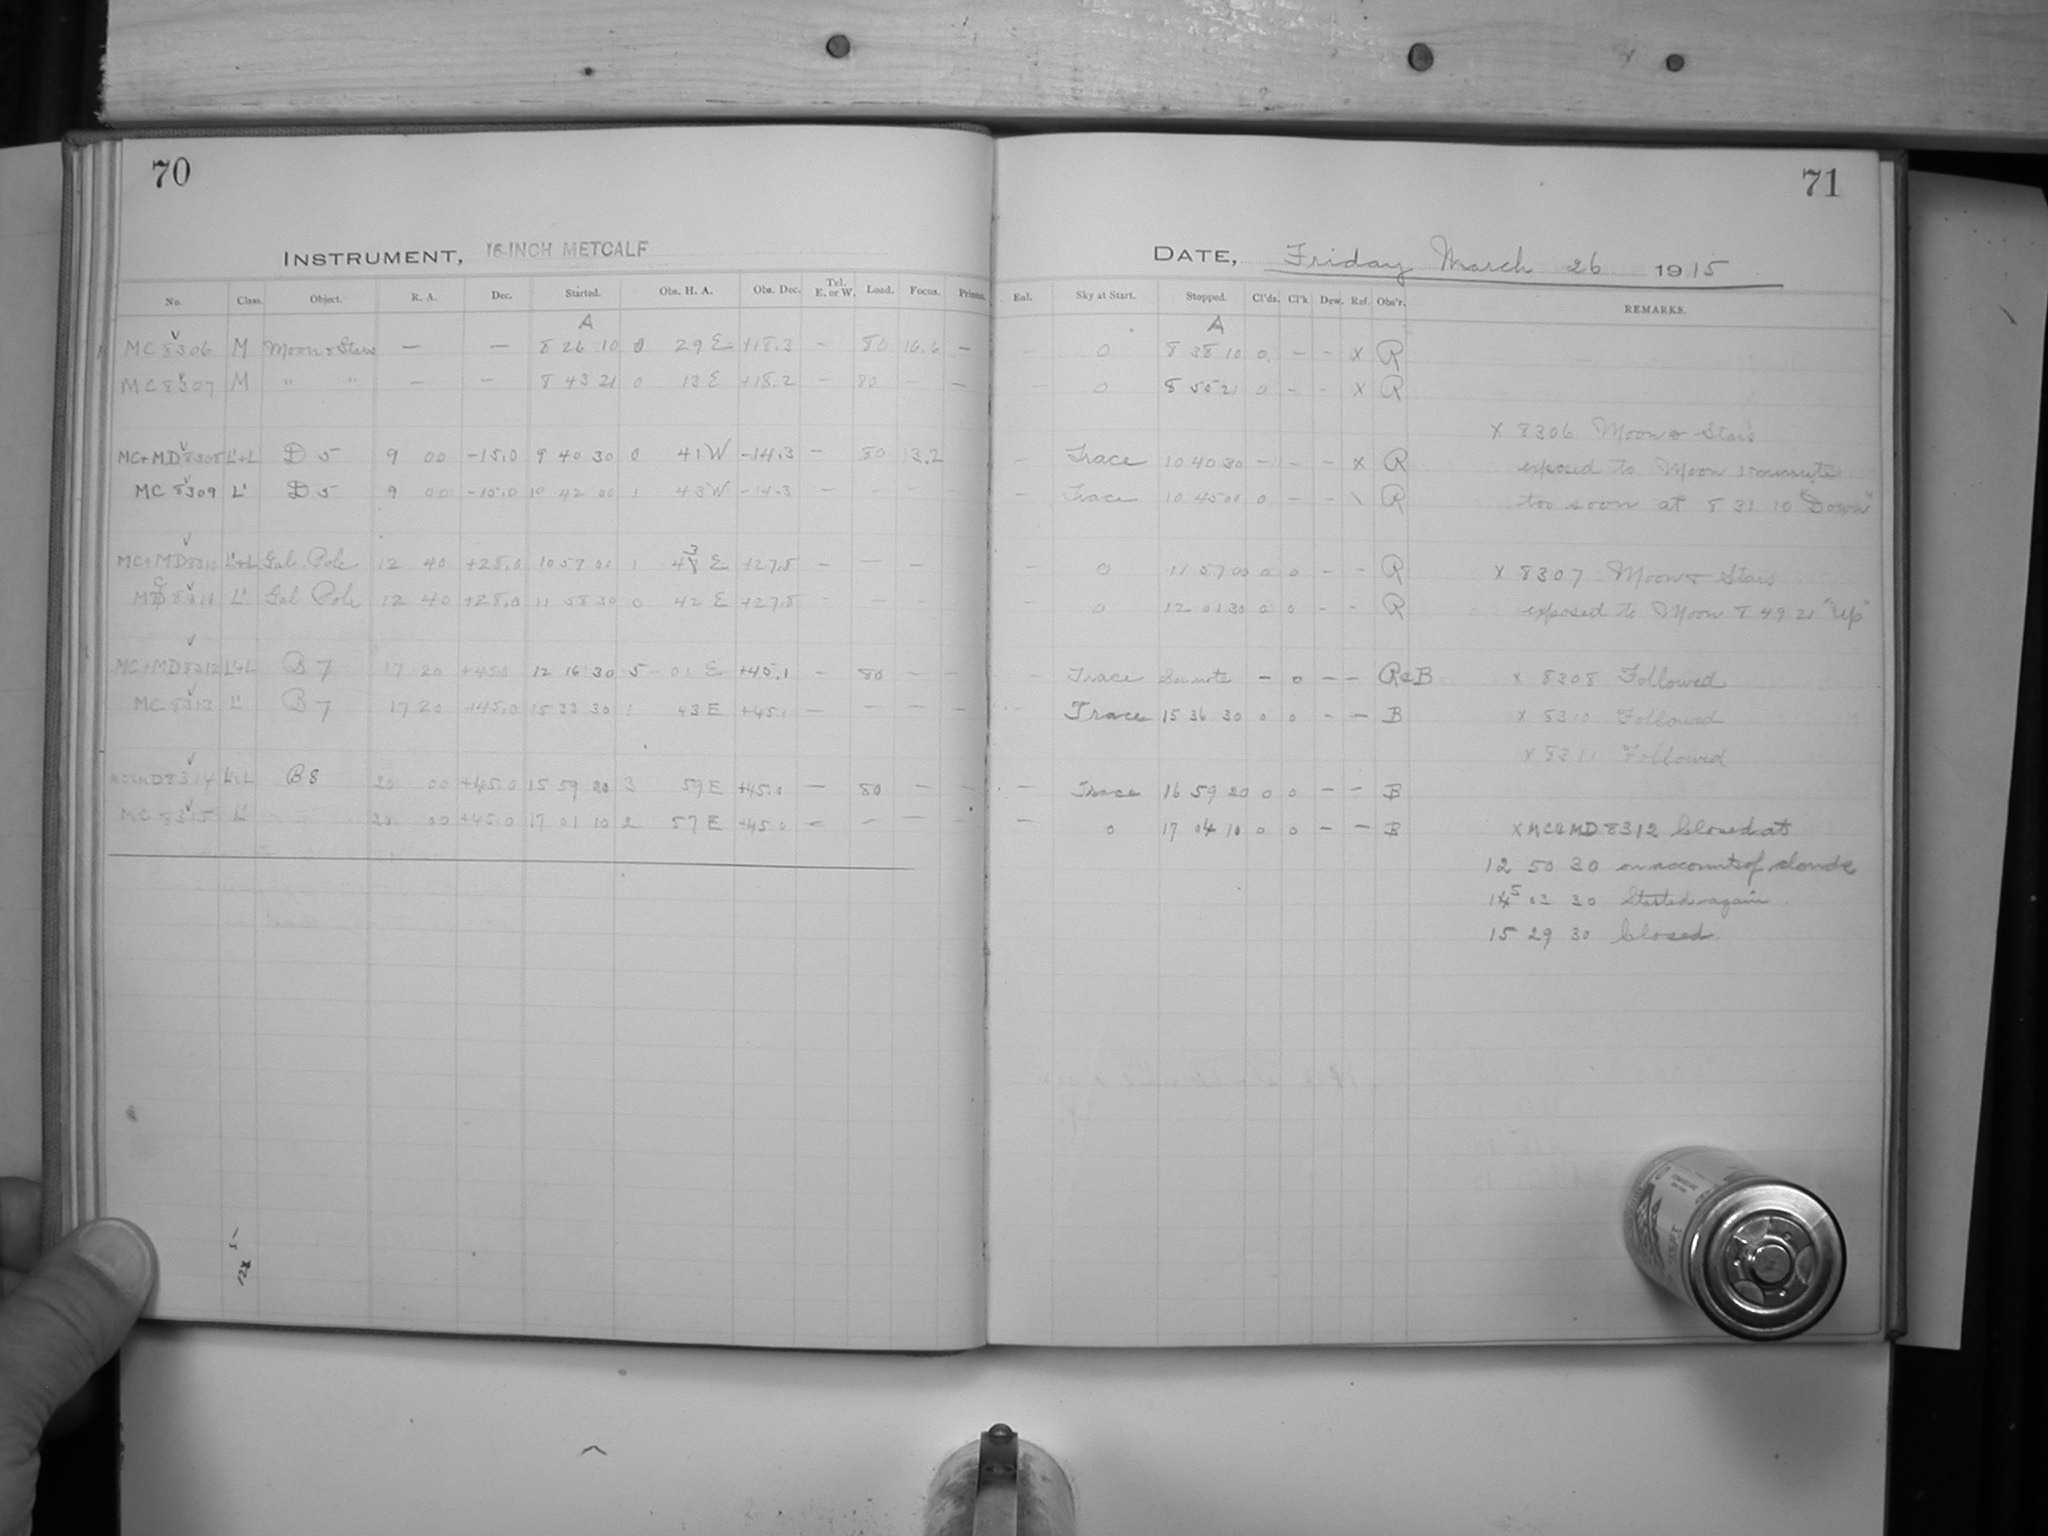 70
INSTRUMENT, 16-INCH METCALF
No. Class. Object. R. A. Dec. Started. Obs. H. A. Obs. Dec. Tel. E. or W. Load. Focus. Prisms.
A
MC 8306 M Moon & Stars — — 8 26 10 0 29 E +18.3 - 80 16.6 —
MC 8307 M " " — — 8 43 21 0 12 E +18.2 — 80 — —
MC+MD 8308 L'+L D 5 9 00 -15.0 9 40 30 0 41 W -14.3 — 80 13.2
MC 8309 L' D 5 9 00 -15.0 10 42 00 1 43 W -14.3 — — —
MC+MD 8310 L'+L Gal. Pole 12 40 +28.0 10 57 00 1 43 E +27.8 — — —
MC 8311 L' Gal Pole 12 40 +28.0 11 58 30 0 42 E +27.8 — — —
MC+MD 8312 L'+L B 7 17 20 +45.0 12 16 30 5 01 E +45.1 — 80 — —
MC 8313 L' B 7 17 20 +45.0 15 33 30 1 43 E +45.1 — — — —
MC+MD 8314 L'+L B 8 20 00 +45.0 15 59 20 3 59 E +45.0 — 80 — —
MC 8315 L' 20 00 +45.0 17 01 10 2 57 E +45.0 — — — —
5
128
71
DATE, Friday March 26 1915
Enl. Sky at Start. Stopped. Cl'ds. Cl'k Dew. Ref. Obs'r. REMARKS.
A
— 0 8 38 10 0 - - x R
— 0 8 55 21 0 - - x R
x 8306 Moon & Stars
— Trace 10 40 30 - - - x R
exposed to Moon 1 minute
— Trace 10 45 00 0 - - R
too soon at 8 31 10 "Down"
— 0 11 57 00 0 0 - - R
x 8307 Moon & Stars
— 0 12 01 30 0 0 - - R
exposed to Moon 8 49 21 "Up"
— Trace See note — 0 — — R&B
x 8308 Followed
Trace 15 36 30 0 0 - — B
x 8310 Followed
x 8311 Followed
— Trace 16 59 20 0 0 — — B
— 0 17 04 10 0 0 — — B
x MC&MD 8312 Closed at
12 50 30 on account of clouds
15 03 30 Started again
15 29 30 Closed.